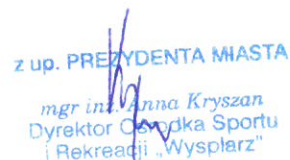 z up. PREZYDENTA MIASTA
mgr inż. Anna Kryszan
Dyrektor Ośrodka Sportu
i Rekreacji „Wyspiarz"